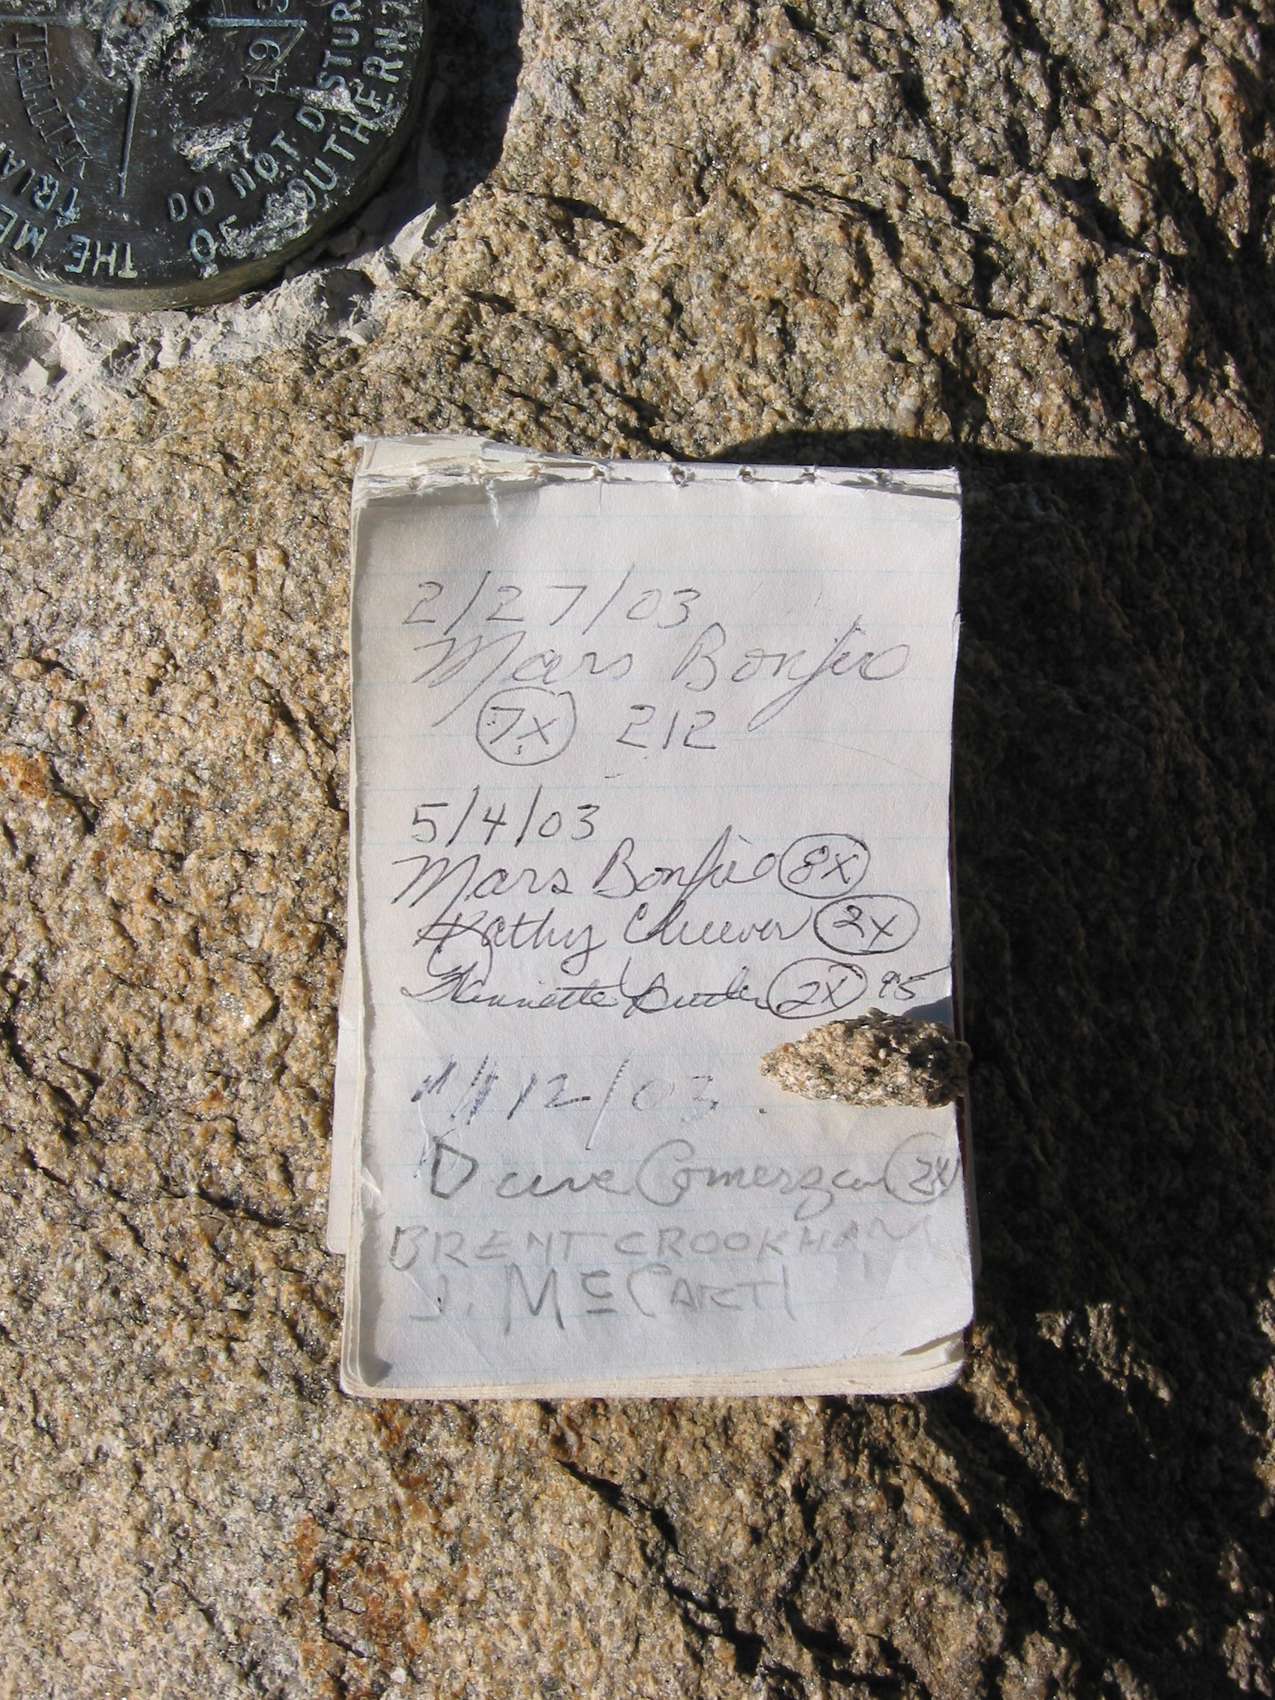 THE ME
TRIA
DO NOT DISTUR
OF SOUTHERN
2/27/03
Mars Bonfire
7X 212
5/4/03
Mars Bonfire 8X
Kathy Cheever 2X
Henriette 2X 95
12/03
Dave Comerzan 2X
BRENT CROOKHAM
J. McCARTY